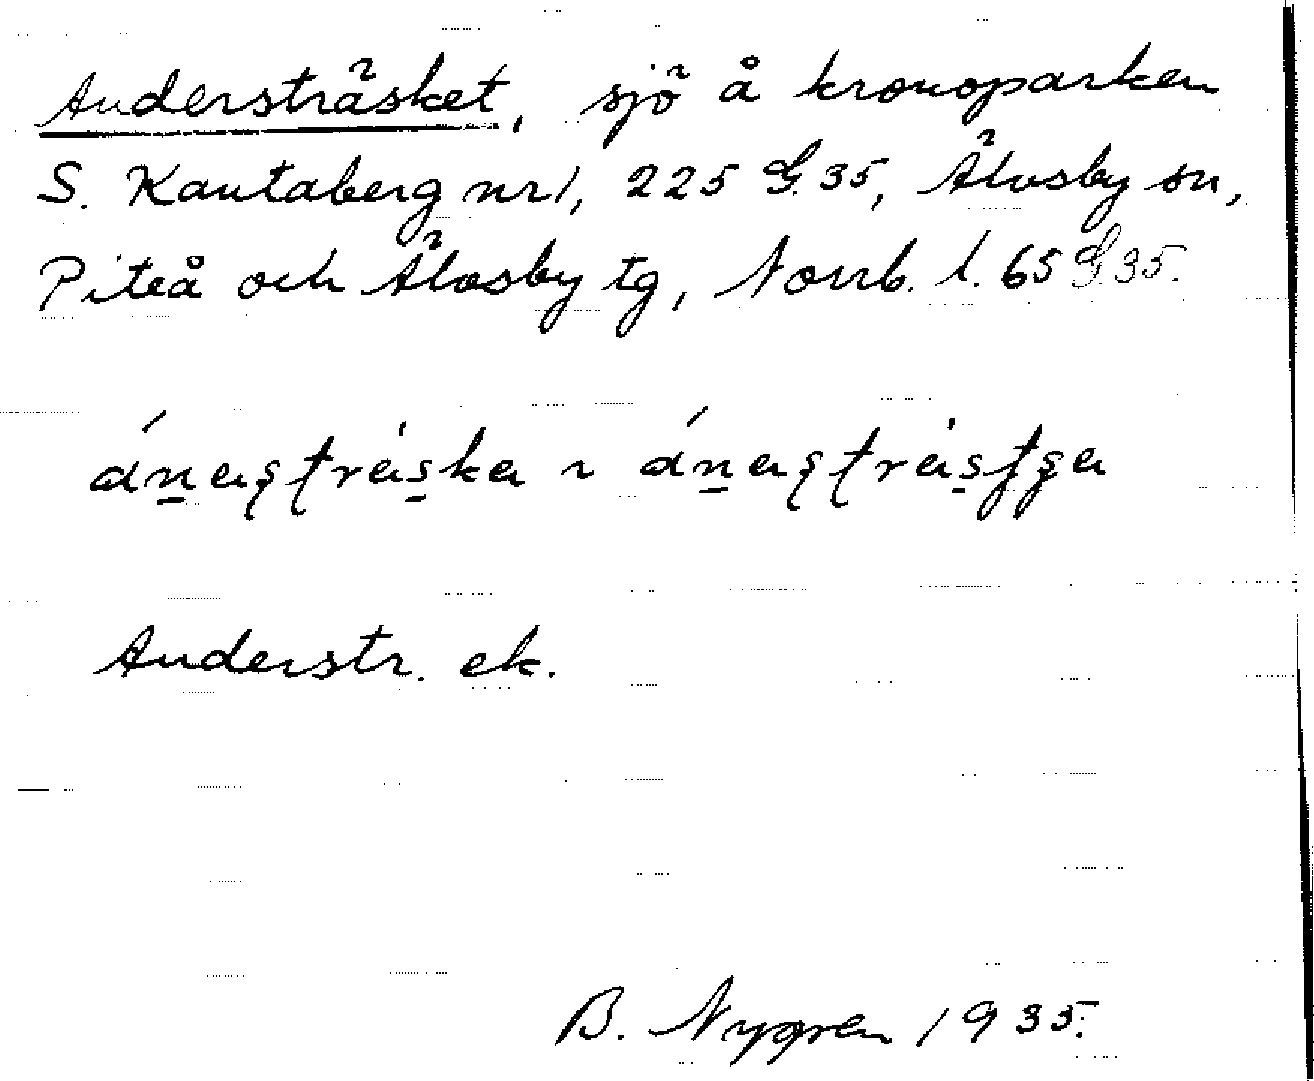 Andersträsket, sjö å kronoparken
S. Kantaberg nr 1, 225 G. 35, Älvsby sn,
Piteå och Älvsby tg, Norrb. l. 65 G. 35.
Anderstr. ek.
B. Nygren 1935.